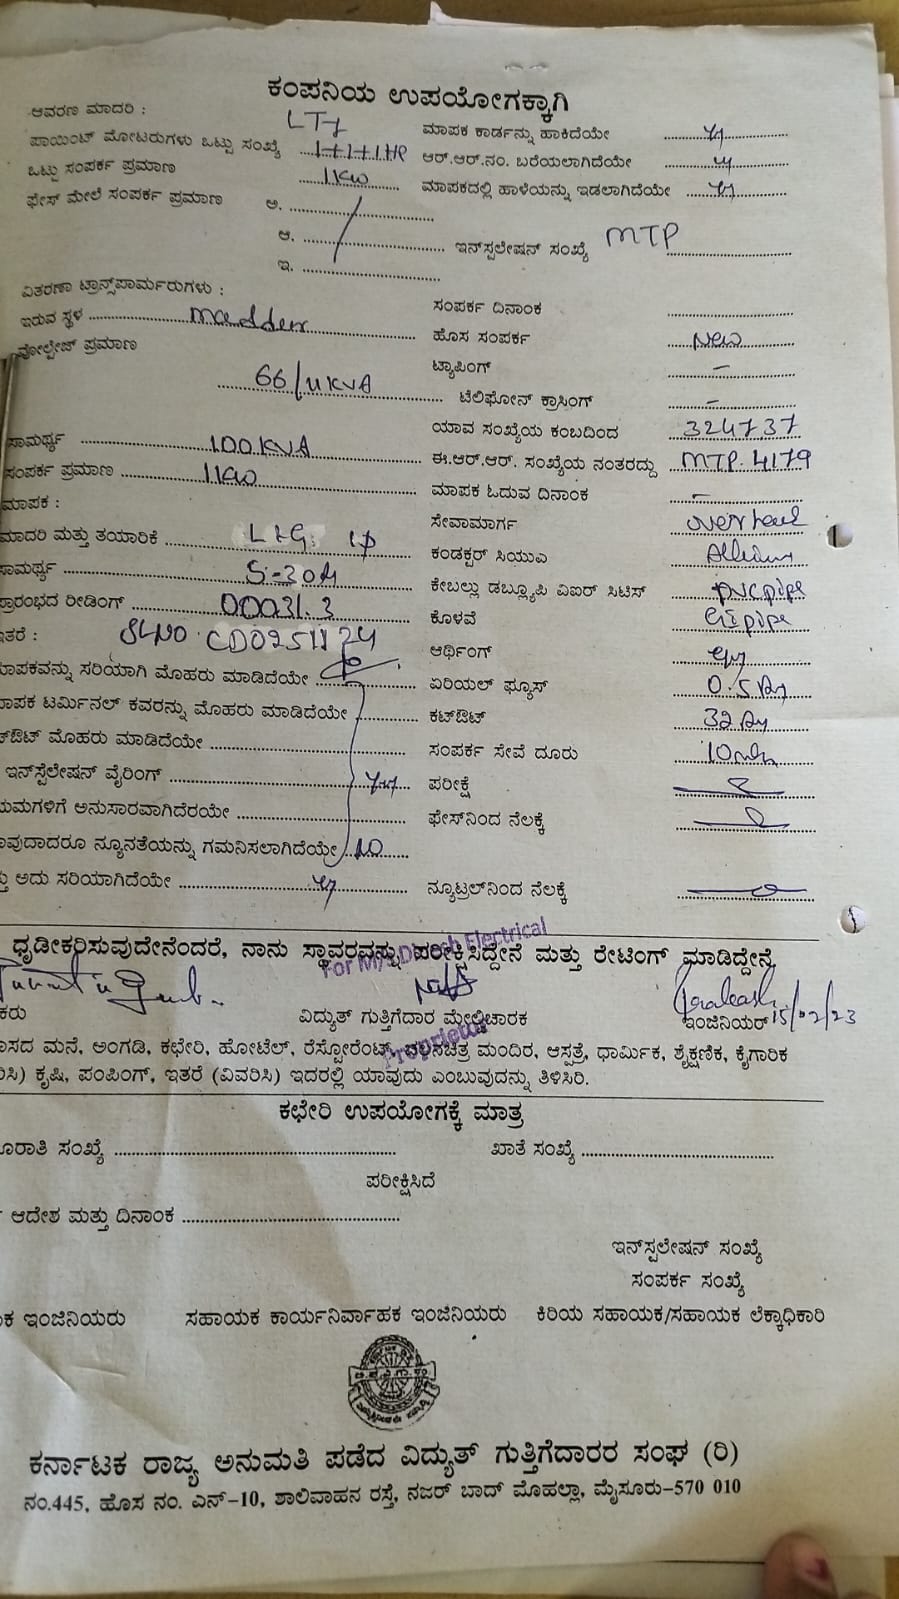 ಕಂಪನಿಯ ಉಪಯೋಗಕ್ಕಾಗಿ
ಆವರಣ ಮಾದರಿ : LT7 ಮಾಪಕ ಕಾರ್ಡನ್ನು ಹಾಕಿದೆಯೇ
ಪಾಯಿಂಟ್ ಮೋಟರುಗಳು ಒಟ್ಟು ಸಂಖ್ಯೆ 1+1+1HP ಆರ್.ಆರ್.ನಂ. ಬರೆಯಲಾಗಿದೆಯೇ
ಒಟ್ಟು ಸಂಪರ್ಕ ಪ್ರಮಾಣ 1KW ಮಾಪಕದಲ್ಲಿ ಹಾಳೆಯನ್ನು ಇಡಲಾಗಿದೆಯೇ
ಫೇಸ್ ಮೇಲೆ ಸಂಪರ್ಕ ಪ್ರಮಾಣ ಅ.
ಆ. ಇನ್‌ಸ್ಪಲೇಷನ್ ಸಂಖ್ಯೆ MTP
ಇ.
ವಿತರಣಾ ಟ್ರಾನ್ಸ್‌ಪಾರ್ಮರುಗಳು : ಸಂಪರ್ಕ ದಿನಾಂಕ
ಇರುವ ಸ್ಥಳ Maddur ಹೊಸ ಸಂಪರ್ಕ New
ವೋಲ್ಟೇಜ್ ಪ್ರಮಾಣ 66/11KVA ಟ್ಯಾಪಿಂಗ್ –
ಟೆಲಿಫೋನ್ ಕ್ರಾಸಿಂಗ್ –
ಸಾಮರ್ಥ್ಯ 100KVA ಯಾವ ಸಂಖ್ಯೆಯ ಕಂಬದಿಂದ 324737
ಸಂಪರ್ಕ ಪ್ರಮಾಣ 1KW ಈ.ಆರ್.ಆರ್. ಸಂಖ್ಯೆಯ ನಂತರದ್ದು MTP. 4179
ಮಾಪಕ : ಮಾಪಕ ಓದುವ ದಿನಾಂಕ –
ಮಾದರಿ ಮತ್ತು ತಯಾರಿಕೆ L&G ಸೇವಾಮಾರ್ಗ overhead
ಸಾಮರ್ಥ್ಯ 5-30A ಕಂಡಕ್ಟರ್ ಸಿಯುಎ
ಪ್ರಾರಂಭದ ರೀಡಿಂಗ್ 00031.3 ಕೇಬಲ್ಲು ಡಬ್ಲ್ಯೂಪಿ ವಿಐಆರ್ ಸಿಟಿಸ್ PVC pipe
ಇತರೆ : SLNO CD0251124 ಕೊಳವೆ GI pipe
ಮಾಪಕವನ್ನು ಸರಿಯಾಗಿ ಮೊಹರು ಮಾಡಿದೆಯೇ ಆರ್ಥಿಂಗ್
ಮಾಪಕ ಟರ್ಮಿನಲ್ ಕವರನ್ನು ಮೊಹರು ಮಾಡಿದೆಯೇ ಏರಿಯಲ್ ಫ್ಯೂಸ್ 0.5
ಕಟ್‌ಔಟ್ ಮೊಹರು ಮಾಡಿದೆಯೇ ಕಟ್‌ಔಟ್ 32
ಸಂಪರ್ಕ ಸೇವೆ ದೂರು
ಇನ್‌ಸ್ಪೆಲೇಷನ್ ವೈರಿಂಗ್ ಪರೀಕ್ಷೆ
ಯಮಗಳಿಗೆ ಅನುಸಾರವಾಗಿದೆರಯೇ ಫೇಸ್‌ನಿಂದ ನೆಲಕ್ಕೆ
ವುದಾದರೂ ನ್ಯೂನತೆಯನ್ನು ಗಮನಿಸಲಾಗಿದೆಯೇ NO
ತು ಅದು ಸರಿಯಾಗಿದೆಯೇ ನ್ಯೂಟ್ರಲ್‌ನಿಂದ ನೆಲಕ್ಕೆ
ಧೃಡೀಕರಿಸುವುದೇನೆಂದರೆ, ನಾನು ಸ್ಥಾವರವನ್ನು ಪರೀಕ್ಷಿಸಿದ್ದೇನೆ ಮತ್ತು ರೇಟಿಂಗ್ ಮಾಡಿದ್ದೇನೆ
For M/s Electrical
ಕರು ವಿದ್ಯುತ್ ಗುತ್ತಿಗೆದಾರ ಮೇಲ್ವಿಚಾರಕ ಇಂಜಿನಿಯರ್ 15/02/23
Proprietor
ಾಸದ ಮನೆ, ಅಂಗಡಿ, ಕಛೇರಿ, ಹೋಟೆಲ್, ರೆಸ್ಟೋರೆಂಟ್, ಚಲನಚಿತ್ರ ಮಂದಿರ, ಆಸ್ಪತ್ರೆ, ಧಾರ್ಮಿಕ, ಶೈಕ್ಷಣಿಕ, ಕೈಗಾರಿಕ
ರಿಸಿ) ಕೃಷಿ, ಪಂಪಿಂಗ್, ಇತರೆ (ವಿವರಿಸಿ) ಇದರಲ್ಲಿ ಯಾವುದು ಎಂಬುವುದನ್ನು ತಿಳಿಸಿರಿ.
ಕಛೇರಿ ಉಪಯೋಗಕ್ಕೆ ಮಾತ್ರ
ೂರಾತಿ ಸಂಖ್ಯೆ ಖಾತೆ ಸಂಖ್ಯೆ
ಪರೀಕ್ಷಿಸಿದೆ
ಆದೇಶ ಮತ್ತು ದಿನಾಂಕ
ಇನ್‌ಸ್ಪಲೇಷನ್ ಸಂಖ್ಯೆ
ಸಂಪರ್ಕ ಸಂಖ್ಯೆ
ಕ ಇಂಜಿನಿಯರು ಸಹಾಯಕ ಕಾರ್ಯನಿರ್ವಾಹಕ ಇಂಜಿನಿಯರು ಕಿರಿಯ ಸಹಾಯಕ/ಸಹಾಯಕ ಲೆಕ್ಕಾಧಿಕಾರಿ
ಕರ್ನಾಟಕ ರಾಜ್ಯ ಅನುಮತಿ ಪಡೆದ ವಿದ್ಯುತ್ ಗುತ್ತಿಗೆದಾರರ ಸಂಘ (ರಿ)
ನಂ.445, ಹೊಸ ನಂ. ಎನ್-10, ಶಾಲಿವಾಹನ ರಸ್ತೆ, ನಜರ್ ಬಾದ್ ಮೊಹಲ್ಲಾ, ಮೈಸೂರು-570 010